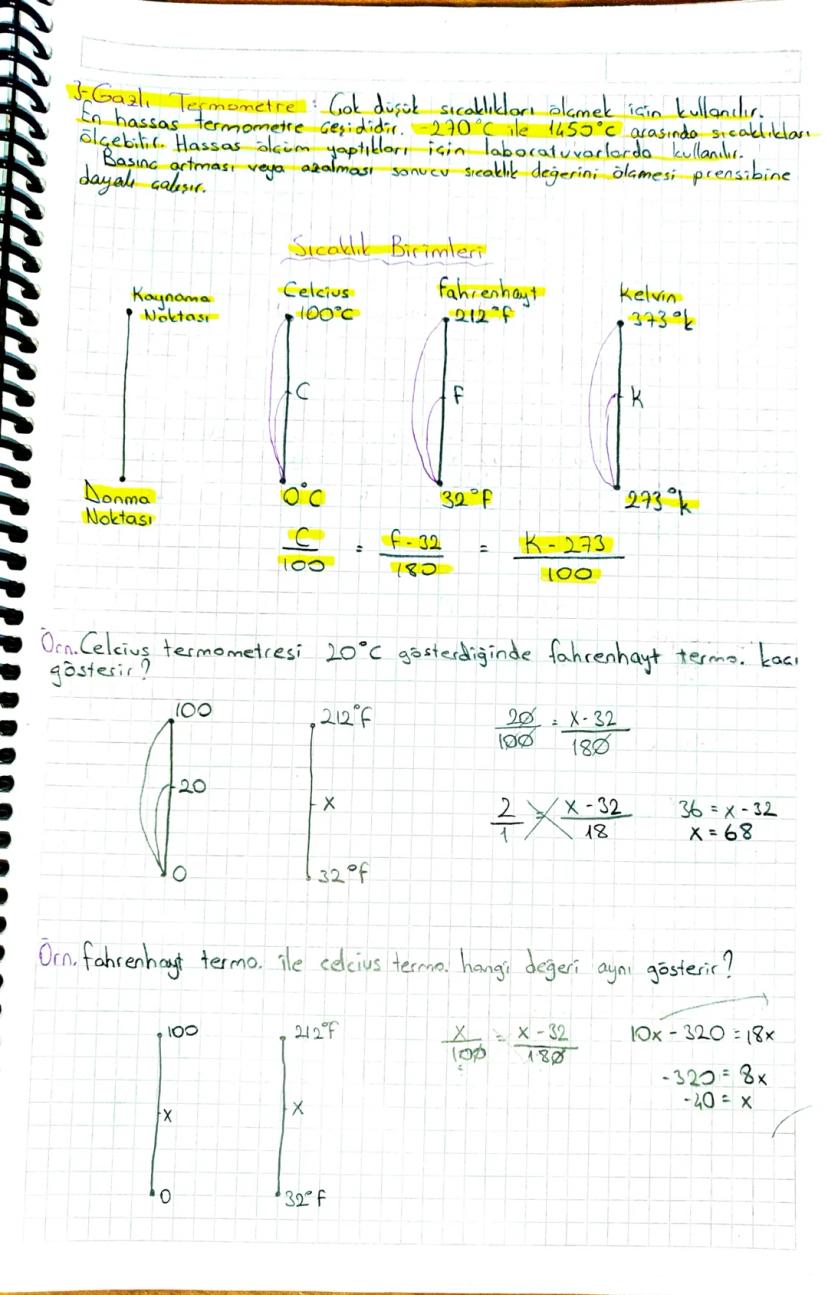 3-Gazlı Termometre : Çok düşük sıcaklıkları ölçmek için kullanılır.
En hassas termometre çeşididir. -270°C ile 1450°C arasında sıcaklıkları
ölçebilir. Hassas ölçüm yaptıkları için laboratuvarlarda kullanılır.
Basınç artması veya azalması sonucu sıcaklık değerini ölçmesi prensibine
dayalı çalışır.
Sıcaklık Birimleri
Kaynama Celcius Fahrenhayt Kelvin
Noktası 100°C 212°F 373°k
C F K
Donma 0°C 32°F 273°k
Noktası
C/100 = F-32/180 = K-273/100
Örn. Celcius termometresi 20°C gösterdiğinde fahrenhayt termo. kaçı
gösterir?
100 212°F 20/100 = x-32/180
20 x 2/1 = x-32/18 36 = x-32
x = 68
0 32°F
Örn. fahrenhayt termo. ile celcius termo. hangi değeri aynı gösterir?
100 212°F x/100 = x-32/180 10x - 320 = 18x
-320 = 8x
x x -40 = x
0 32°F